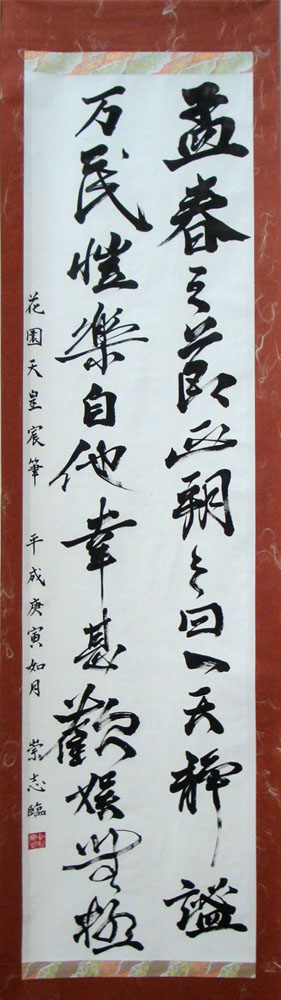 孟春之節正朔之日一天静謐
万民愷樂自他幸甚歡娯無極
花園天皇宸筆 平成庚寅如月 崇志臨